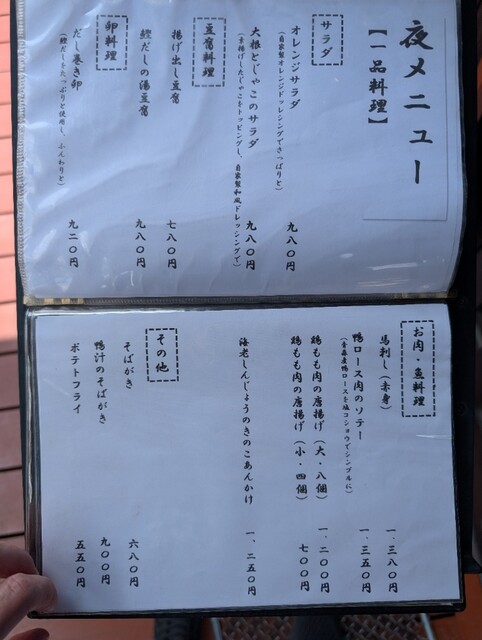 夜メニュー
【一品料理】
サラダ
オレンジサラダ 九八〇円
(自家製オレンジドレッシングでさっぱりと)
大根とじゃこのサラダ 九八〇円
(素揚げしたじゃこをトッピングし、自家製和風ドレッシングで)
豆腐料理
揚げ出し豆腐 七八〇円
鰹だしの湯豆腐 九八〇円
卵料理
だし巻き卵 九二〇円
(鰹だしをたっぷりと使用し、ふんわりと)
お肉・魚料理
馬刺し(赤身) 一、三八〇円
鴨ロース肉のソテー 一、三五〇円
(青森産鴨ロースを塩コショウでシンプルに)
鶏もも肉の唐揚げ(大・八個) 一、二〇〇円
鶏もも肉の唐揚げ(小・四個) 七〇〇円
海老しんじょうのきのこあんかけ 一、二五〇円
その他
そばがき 六八〇円
鴨汁のそばがき 九〇〇円
ポテトフライ 五五〇円